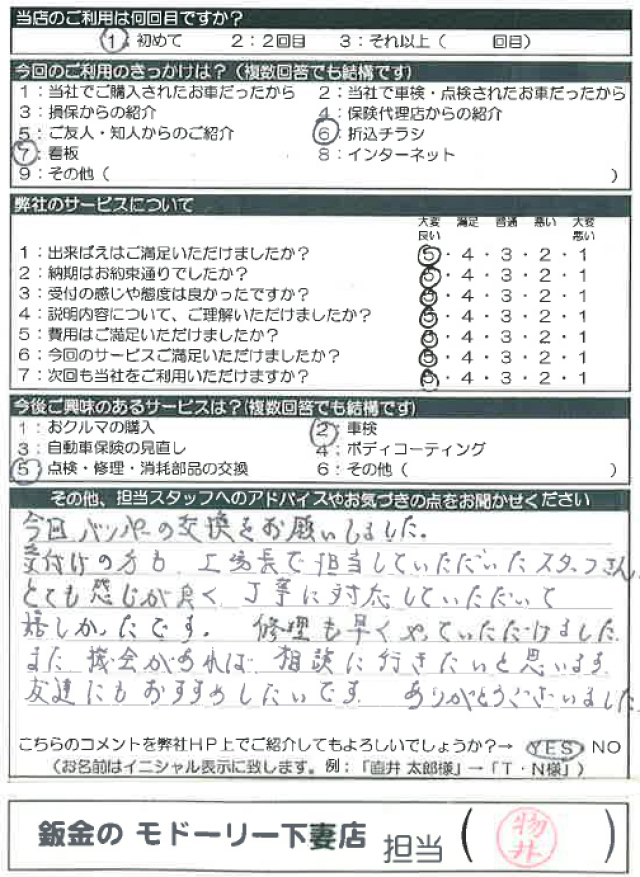 当店のご利用は何回目ですか?
1:初めて 2:2回目 3:それ以上( 回目)
今回のご利用のきっかけは?(複数回答でも結構です)
1:当社でご購入されたお車だったから 2:当社で車検・点検されたお車だったから
3:損保からの紹介 4:保険代理店からの紹介
5:ご友人・知人からのご紹介 6:折込チラシ
7:看板 8:インターネット
9:その他( )
弊社のサービスについて
大変良い 満足 普通 悪い 大変悪い
1:出来ばえはご満足いただけましたか? 5・4・3・2・1
2:納期はお約束通りでしたか? 5・4・3・2・1
3:受付の感じや態度は良かったですか? 5・4・3・2・1
4:説明内容について、ご理解いただけましたか? 5・4・3・2・1
5:費用はご満足いただけましたか? 5・4・3・2・1
6:今回のサービスご満足いただけましたか? 5・4・3・2・1
7:次回も当社をご利用いただけますか? 5・4・3・2・1
今後ご興味のあるサービスは?(複数回答でも結構です)
1:おクルマの購入 2:車検
3:自動車保険の見直し 4:ボディコーティング
5:点検・修理・消耗部品の交換 6:その他( )
その他、担当スタッフへのアドバイスやお気づきの点をお聞かせください
今回バンパーの交換をお願いしました。
受付けの方も 工場長で担当していただいたスタッフさん
とても感じが良く 丁寧に対応していただいて
嬉しかったです。 修理も早くやっていただけました
また機会があれば 相談に行きたいと思います
友達にもおすすめしたいです ありがとうございました
こちらのコメントを弊社HP上でご紹介してもよろしいでしょうか?→ YES NO
(お名前はイニシャル表示に致します。例:「直井 太郎様」→「T・N様」)
鈑金の モドーリー下妻店 担当( 物井 )